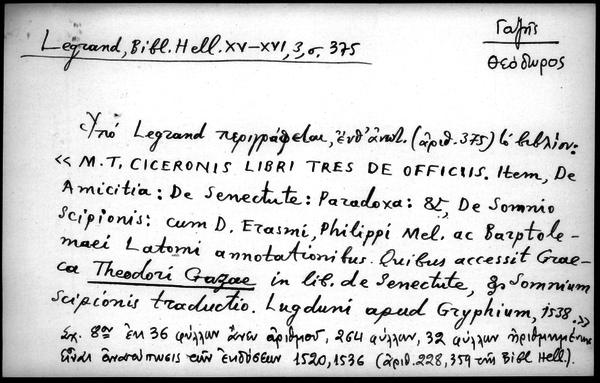 Γαζῆς
Θεόδωρος
Legrand, Bibl. Hell. XV–XVI, 3, σ. 375
Ὑπό Legrand περιγράφεται, ἔνθ' ἀνωτ. (ἀριθ. 375) τό βιβλίον:
« M. T. CICERONIS LIBRI TRES DE OFFICIIS. Item, De
Amicitia: De Senectute: Paradoxa: &, De Somnio
Scipionis: cum D. Erasmi, Philippi Mel. ac Barptole-
maei Latomi annotationibus. Quibus accessit Grae-
ca Theodori Gazae in lib. de Senectute, & Somnium
Scipionis traductio. Lugduni apud Gryphium, 1538.»
Σχ. 8ον ἐκ 36 φύλλων ἄνευ ἀριθμοῦ, 264 φύλλων, 32 φύλλων ἠριθμημένων
Εἶναι ἀνατύπωσις τῶν ἐκδόσεων 1520, 1536 (ἀριθ. 228, 359 τῆς Bibl Hell.).